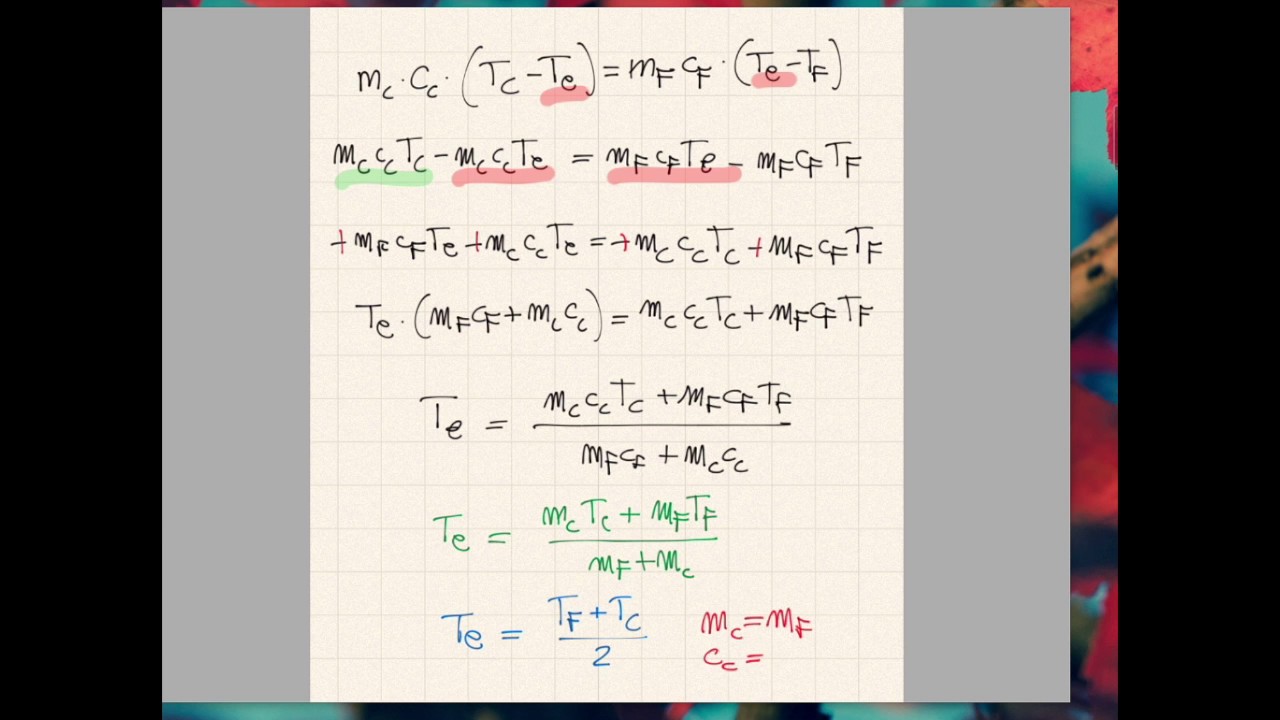 m_c · c_c · (T_c - T_e) = m_F c_F · (T_e - T_F)
m_c c_c T_c - m_c c_c T_e = m_F c_F T_e - m_F c_F T_F
+ m_F c_F T_e + m_c c_c T_e = + m_c c_c T_c + m_F c_F T_F
T_e · (m_F c_F + m_c c_c) = m_c c_c T_c + m_F c_F T_F
T_e = (m_c c_c T_c + m_F c_F T_F) / (m_F c_F + m_c c_c)
T_e = (m_c T_c + m_F T_F) / (m_F + m_c)
T_e = (T_F + T_C) / 2
m_c = m_F
c_c =